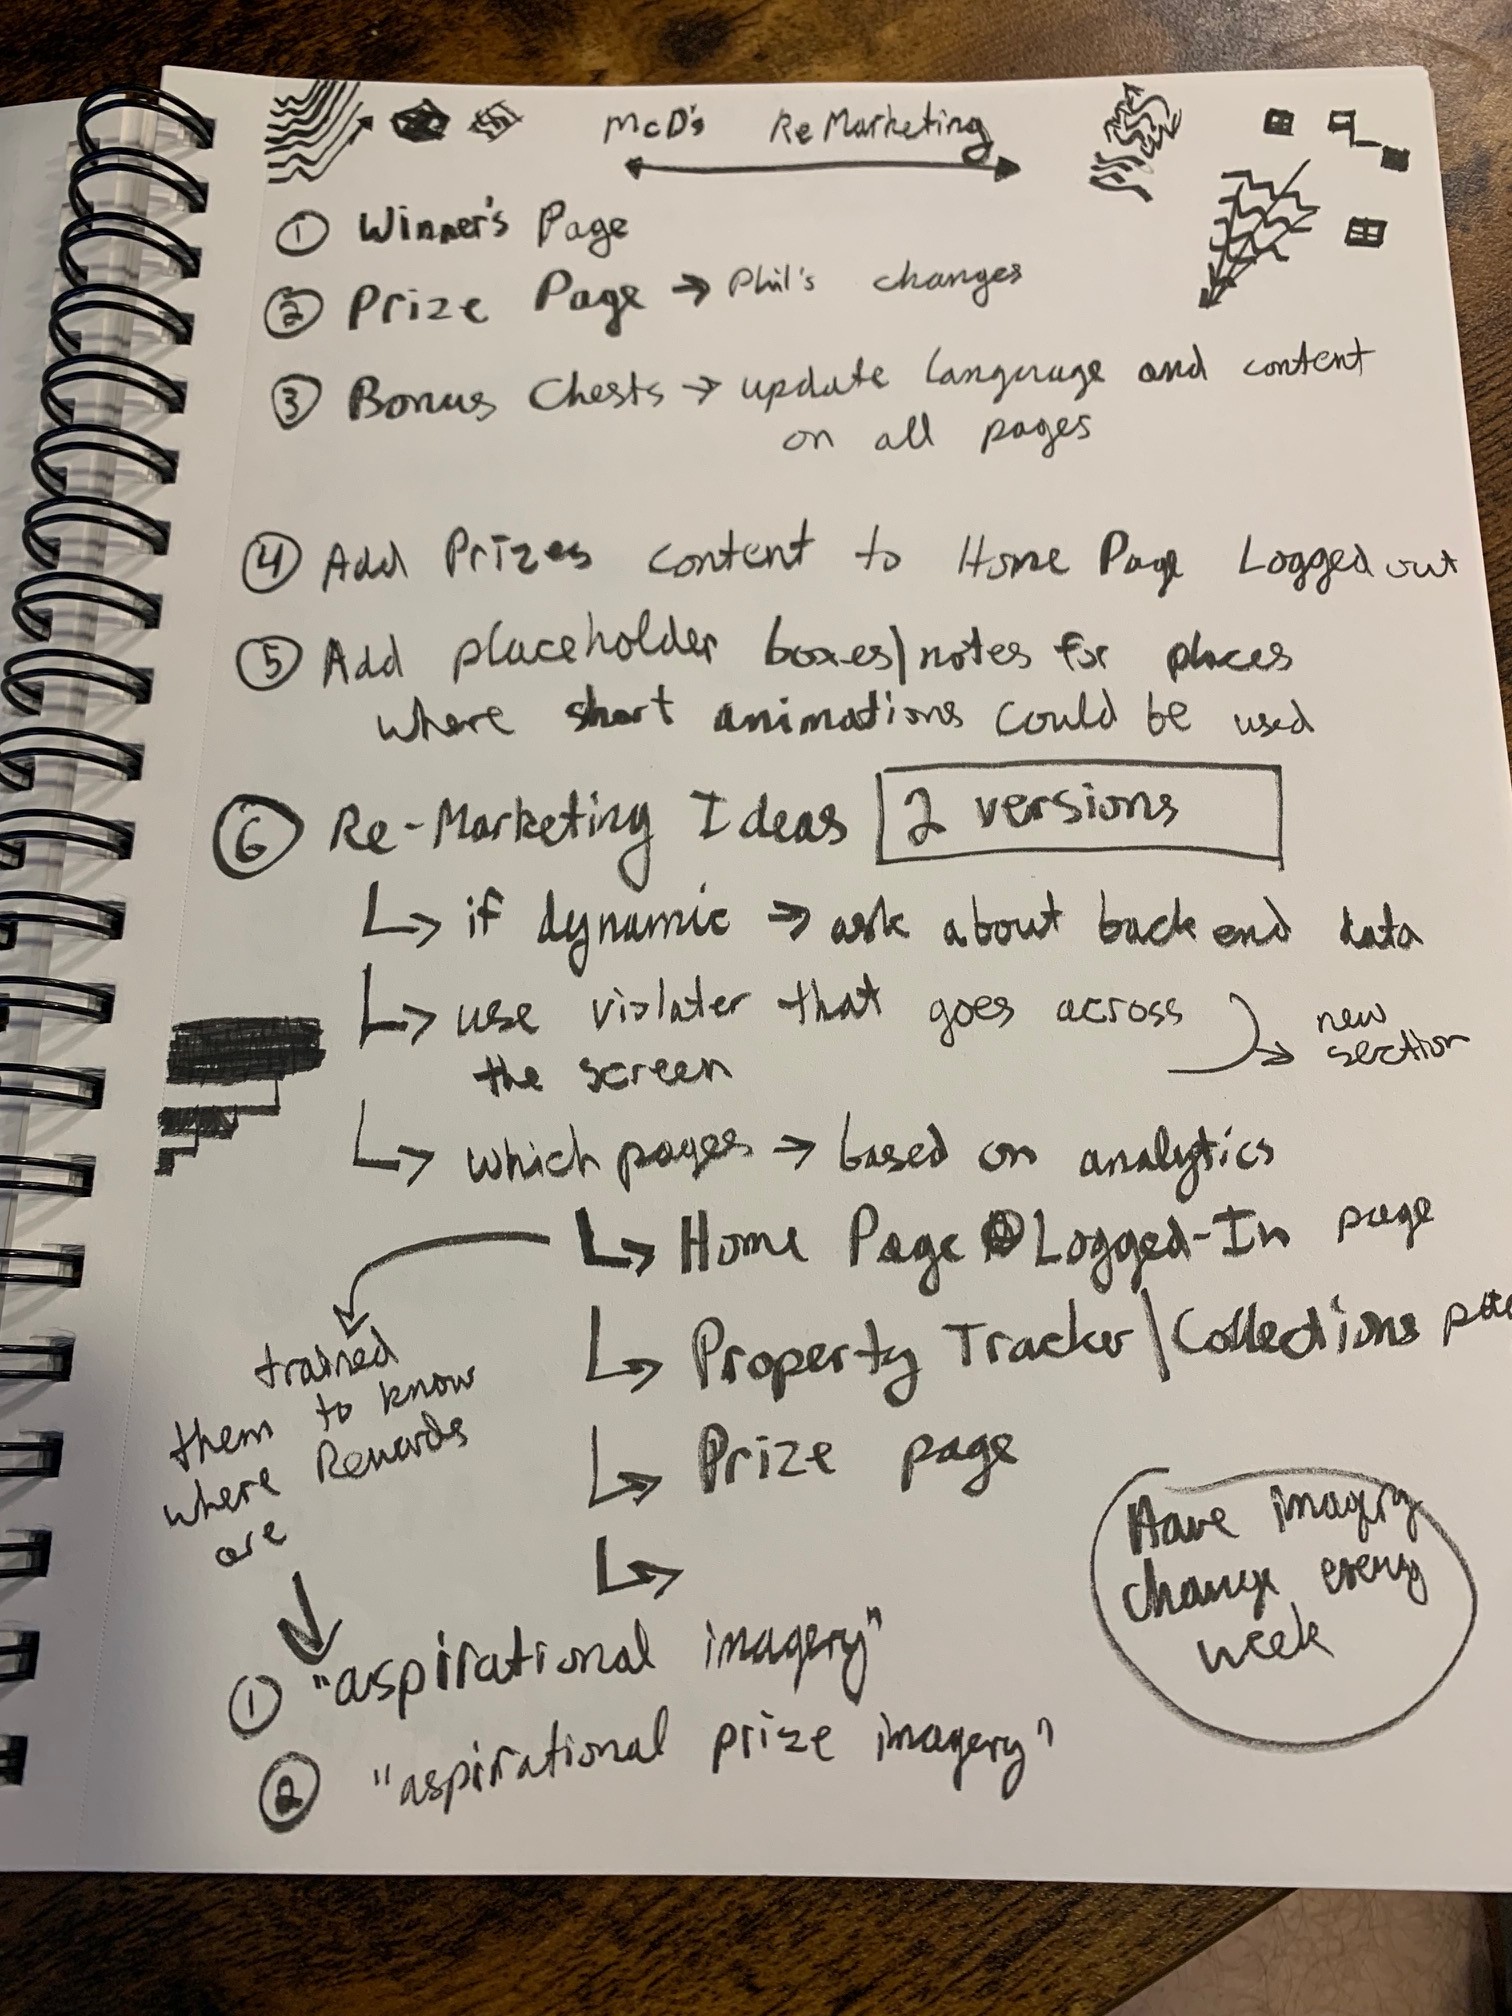 McD's ReMarketing
① Winner's Page
② Prize Page → Phil's changes
③ Bonus Chests → update language and content
on all pages
④ Add Prizes content to Home Page Logged out
⑤ Add placeholder boxes/notes for places
where short animations could be used
⑥ Re-Marketing Ideas 2 versions
↳ if dynamic → ask about back end data
↳ use violater that goes across
the screen
new
section
↳ which pages → based on analytics
↳ Home Page Logged-In page
↳ Property Tracker/Collections
↳ Prize page
↳
trained
them to know
where Rewards
are
Have imagery
change every
week
① "aspirational imagery"
② "aspirational prize imagery"